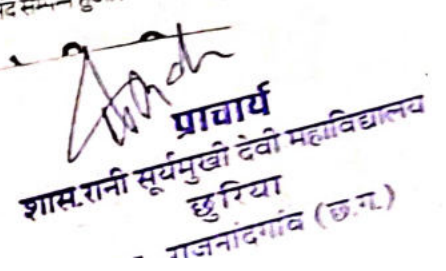 प्राचार्य
शास.रानी सूर्यमुखी देवी महाविद्यालय
छुरिया
राजनांदगांव (छ.ग.)